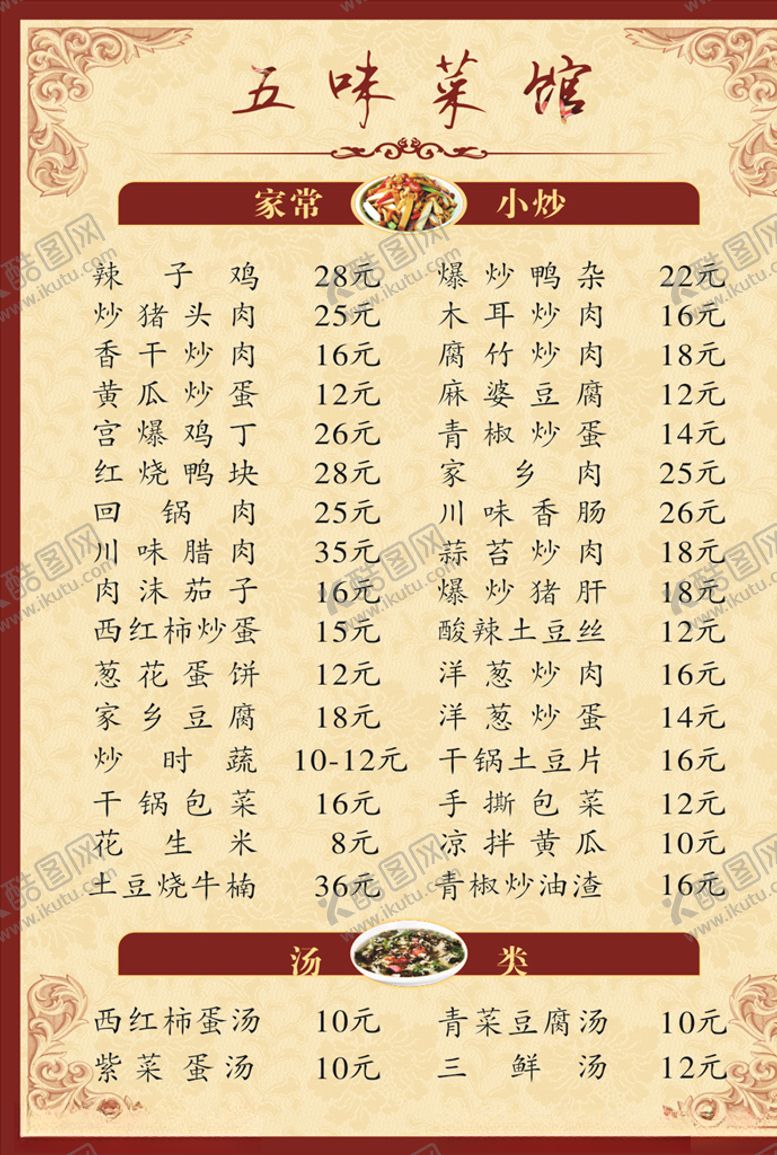 五味菜馆
家常 小炒
辣子鸡 28元 爆炒鸭杂 22元
炒猪头肉 25元 木耳炒肉 16元
香干炒肉 16元 腐竹炒肉 18元
黄瓜炒蛋 12元 麻婆豆腐 12元
宫爆鸡丁 26元 青椒炒蛋 14元
红烧鸭块 28元 家乡肉 25元
回锅肉 25元 川味香肠 26元
川味腊肉 35元 蒜苔炒肉 18元
肉沫茄子 16元 爆炒猪肝 18元
西红柿炒蛋 15元 酸辣土豆丝 12元
葱花蛋饼 12元 洋葱炒肉 16元
家乡豆腐 18元 洋葱炒蛋 14元
炒时蔬 10-12元 干锅土豆片 16元
干锅包菜 16元 手撕包菜 12元
花生米 8元 凉拌黄瓜 10元
土豆烧牛楠 36元 青椒炒油渣 16元
汤 类
西红柿蛋汤 10元 青菜豆腐汤 10元
紫菜蛋汤 10元 三鲜汤 12元
酷图网
www.ikutu.com